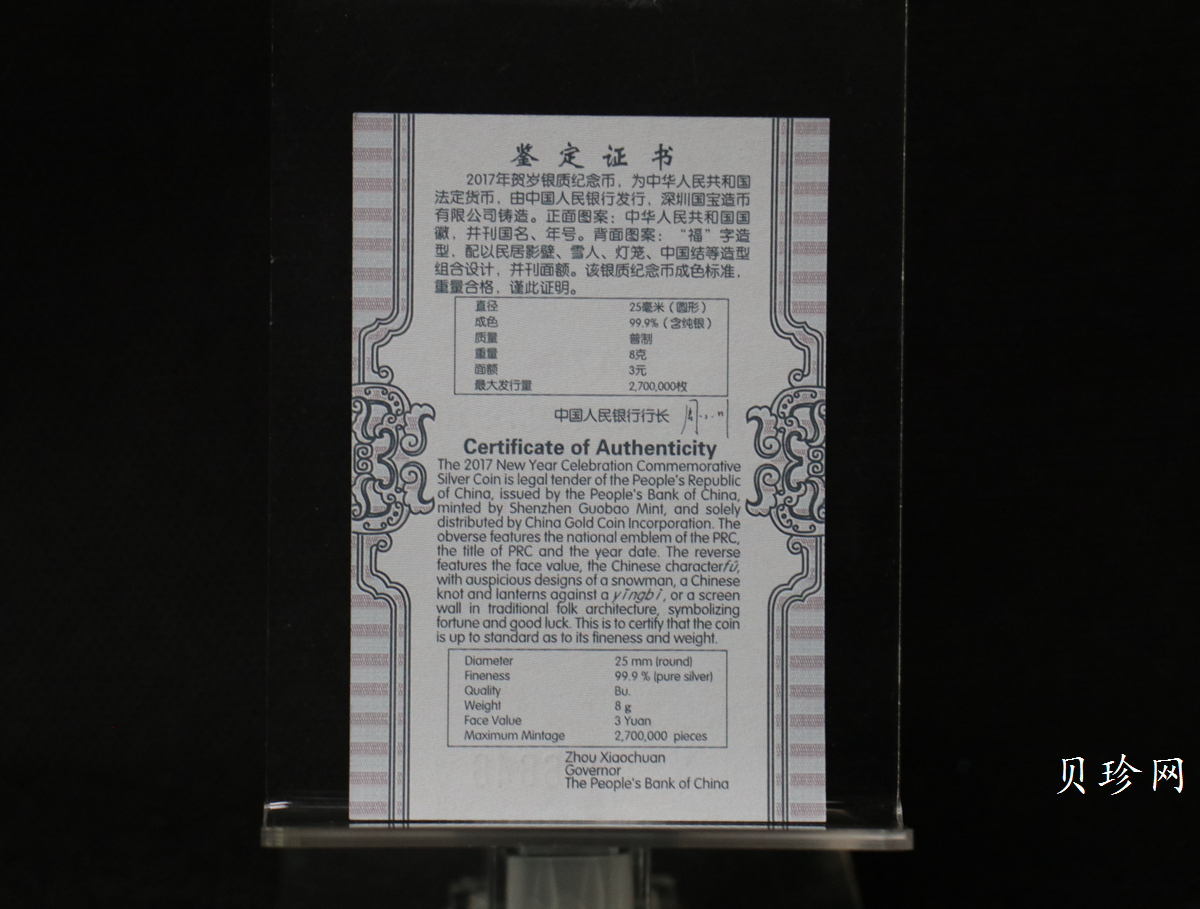 鉴定证书
2017年贺岁银质纪念币，为中华人民共和国
法定货币，由中国人民银行发行，深圳国宝造币
有限公司铸造。正面图案：中华人民共和国国
徽，并刊国名、年号。背面图案：“福”字造
型，配以民居影壁、雪人、灯笼、中国结等造型
组合设计，并刊面额。该银质纪念币成色标准，
重量合格，谨此证明。
直径 25毫米（圆形）
成色 99.9%（含纯银）
质量 普制
重量 8克
面额 3元
最大发行量 2,700,000枚
中国人民银行行长
Certificate of Authenticity
The 2017 New Year Celebration Commemorative
Silver Coin is legal tender of the People's Republic
of China, issued by the People's Bank of China,
minted by Shenzhen Guobao Mint, and solely
distributed by China Gold Coin Incorporation. The
obverse features the national emblem of the PRC,
the title of PRC and the year date. The reverse
features the face value, the Chinese character fú,
with auspicious designs of a snowman, a Chinese
knot and lanterns against a yǐngbì, or a screen
wall in traditional folk architecture, symbolizing
fortune and good luck. This is to certify that the coin
is up to standard as to its fineness and weight.
Diameter 25 mm (round)
Fineness 99.9 % (pure silver)
Quality Bu.
Weight 8 g
Face Value 3 Yuan
Maximum Mintage 2,700,000 pieces
Zhou Xiaochuan
Governor
The People's Bank of China
贝珍网